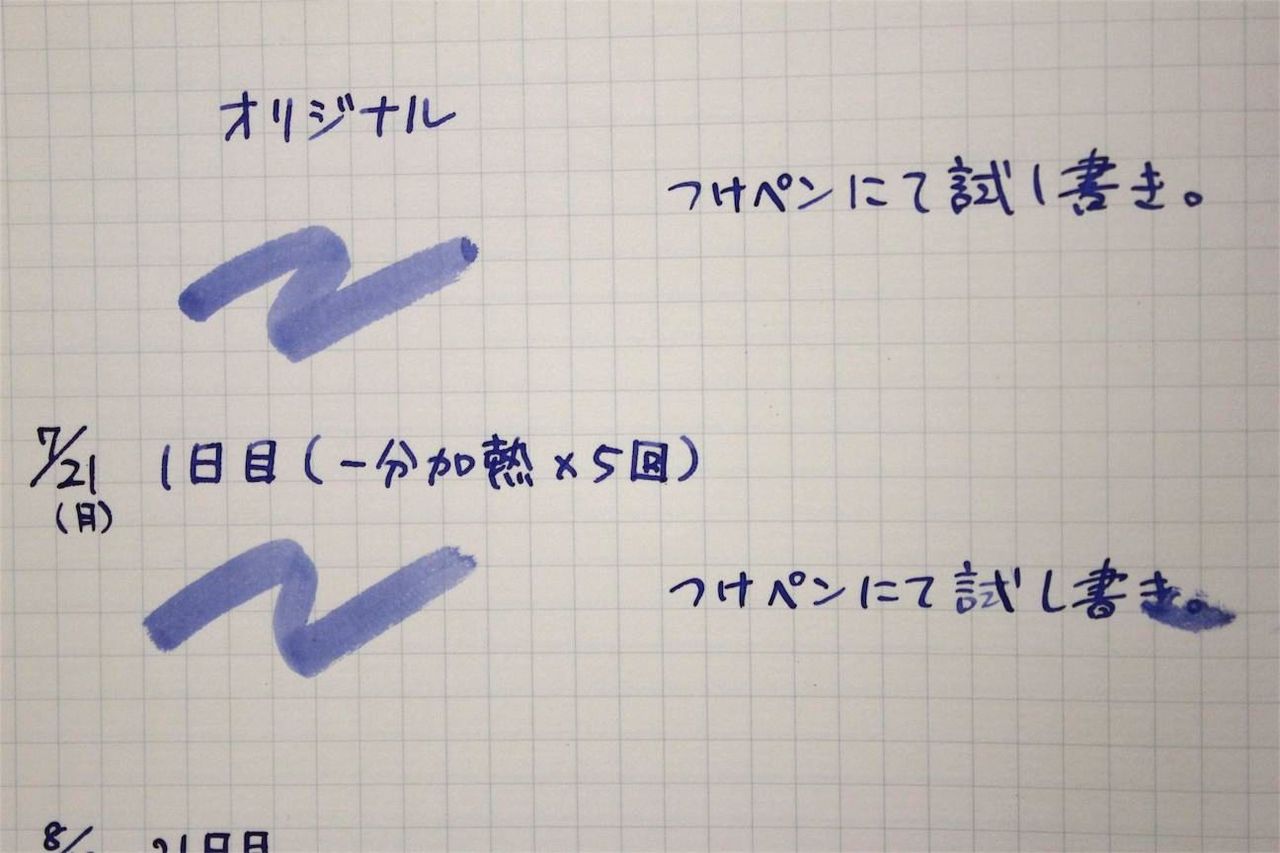 オリジナル
つけペンにて試し書き。
7/21 1日目(一分加熱×5回)
(日)
つけペンにて試し書き。
8/ 21日目